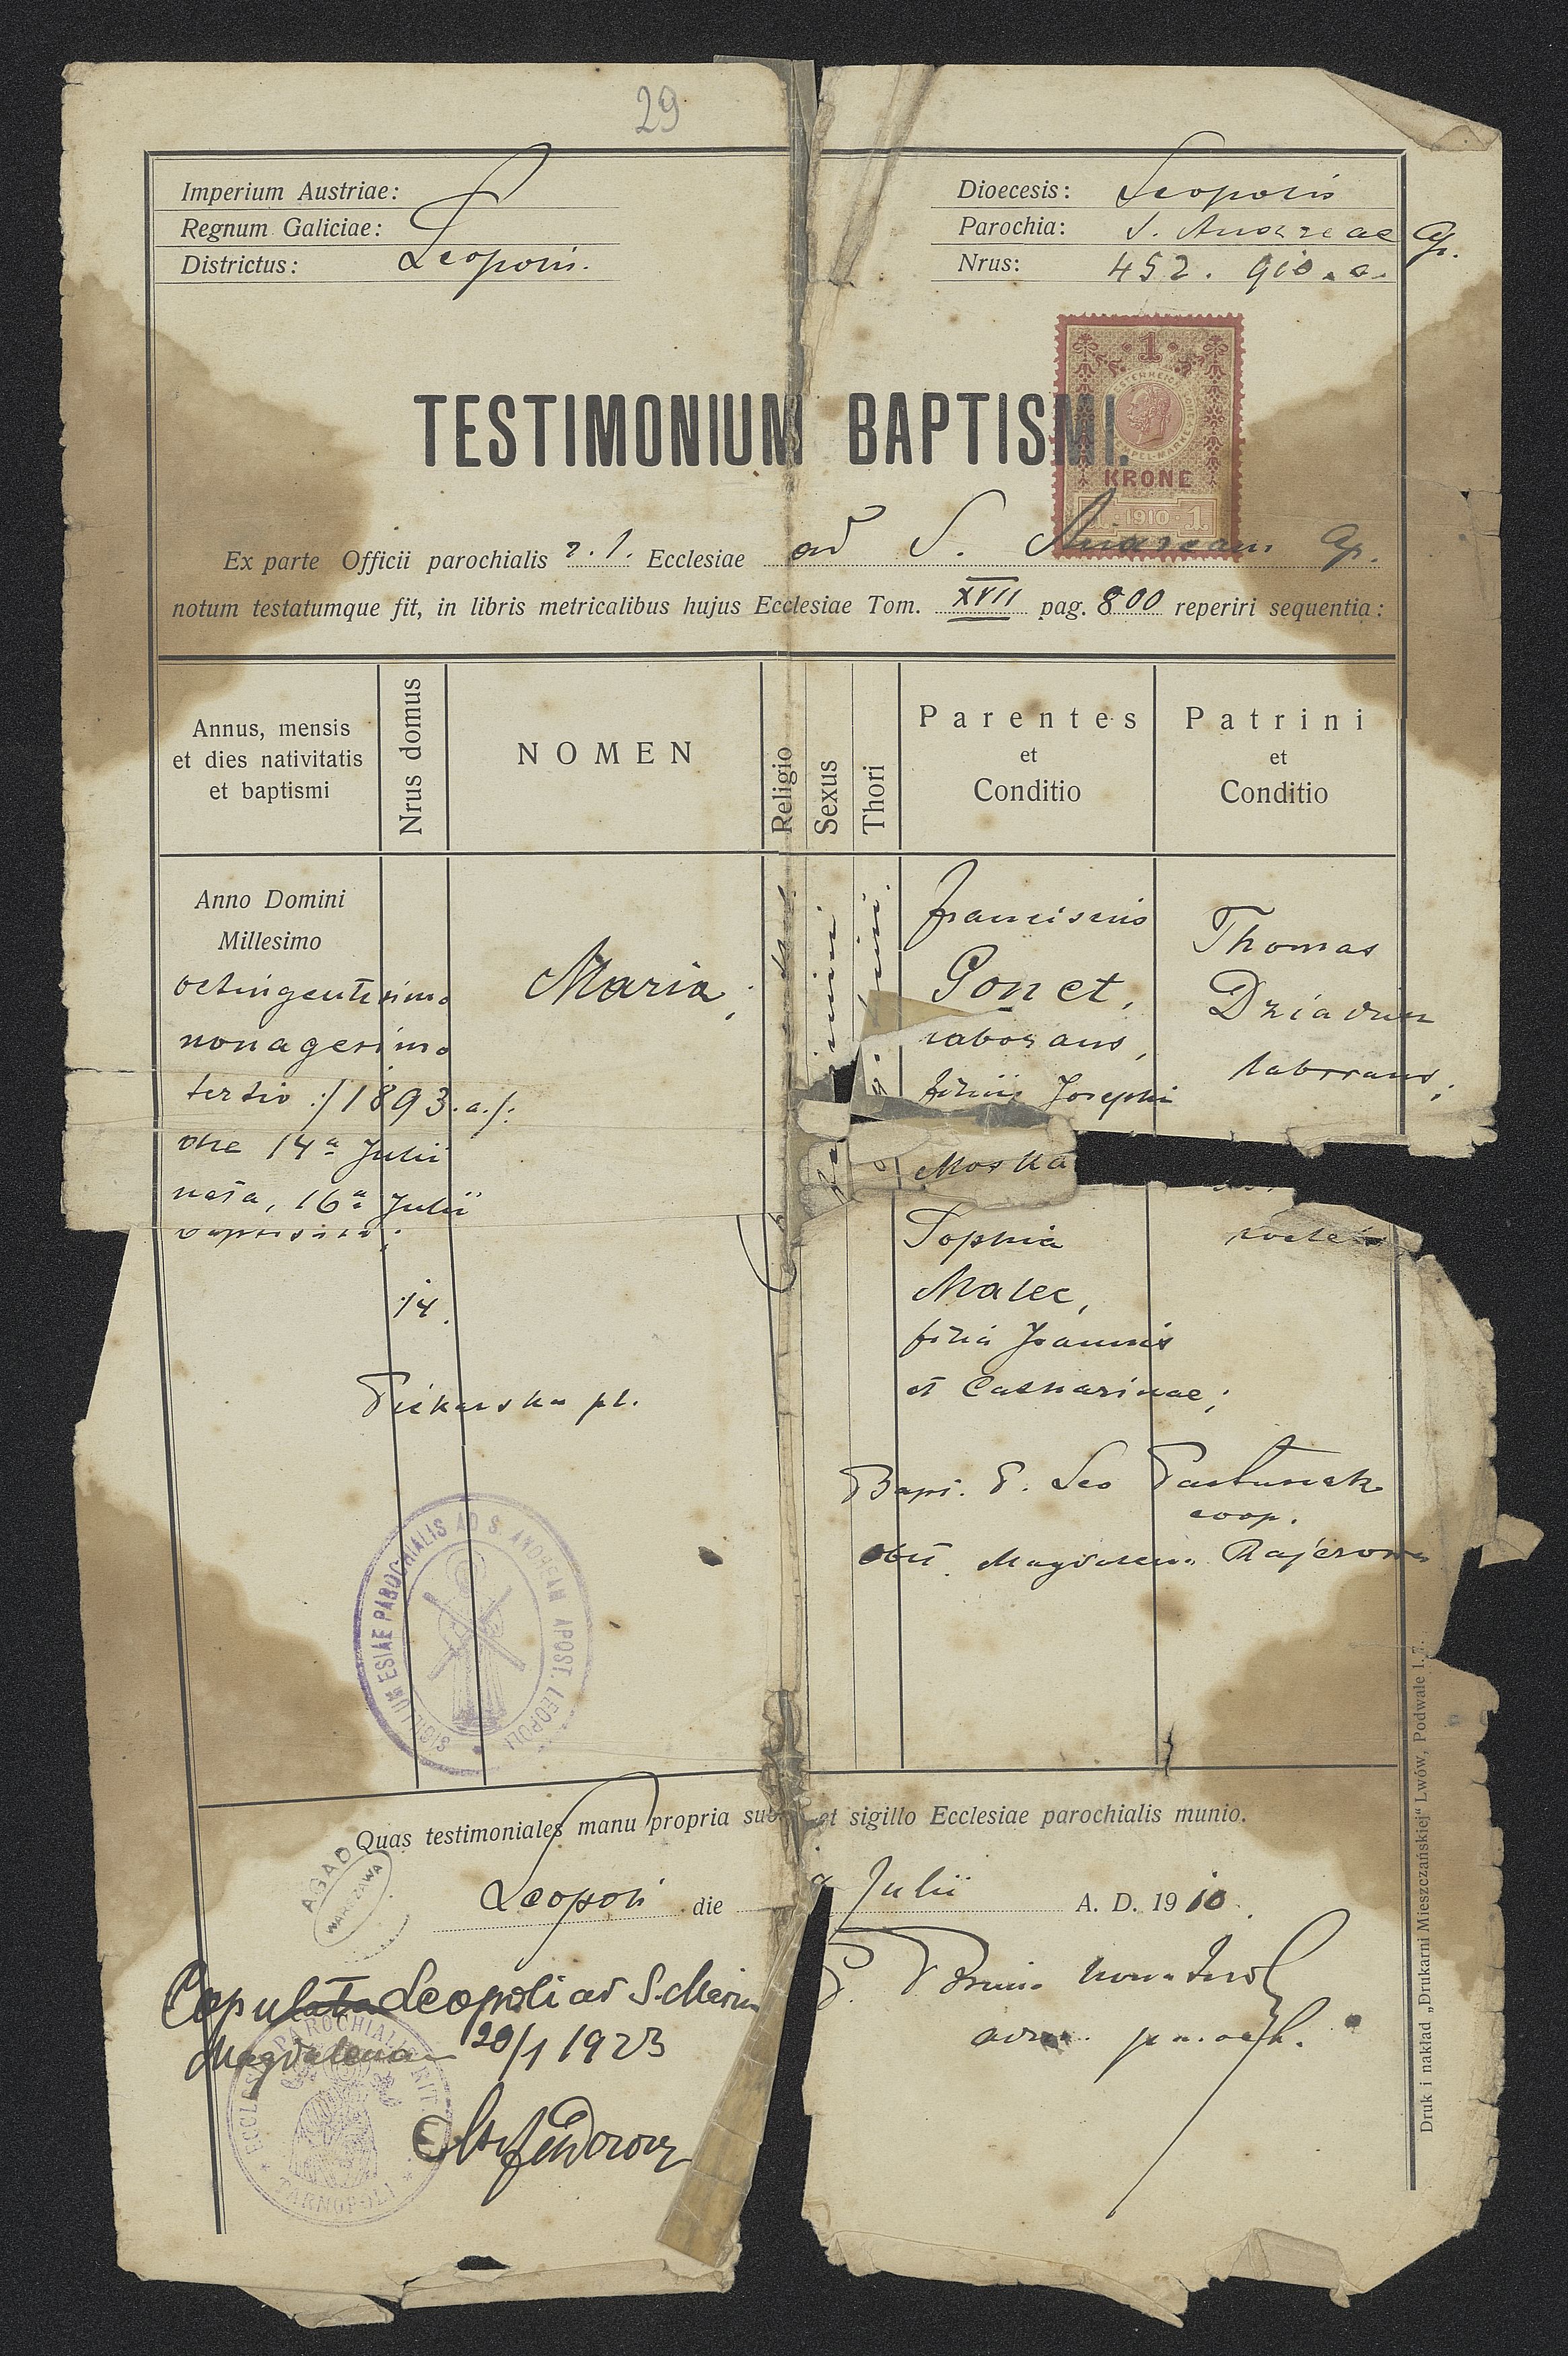 29
Imperium Austriae:
Regnum Galiciae:
Districtus: Leopolis.
Dioecesis: Leopolis
Parochia: S. Andreae Ap.
Nrus: 452. 910. a.
1
KRONE
1 · 1910 · 1
TESTIMONIUM BAPTISMI.
Ex parte Officii parochialis r. l. Ecclesiae ad S. Andream Ap.
notum testatumque fit, in libris metricalibus hujus Ecclesiae Tom. XVII pag. 800 reperiri sequentia:
Annus, mensis
et dies nativitatis
et baptismi
Nrus domus
NOMEN
Religio
Sexus
Thori
Parentes
et
Conditio
Patrini
et
Conditio
Anno Domini
Millesimo
octingentesimo
nonagesimo
tertio :/1893. a./:
die 14a Julii
nata, 16a Julii
baptisata;
14.
Piekarska pl.
Maria;
Franciscus
Gonet,
laborans,
filius Josephi
Moska
Sophia
Malec,
filia Joannis
et Catharinae;
Thomas
Dziadun
laborans;
Bapt. P. Leo Pastuszak
coop.
obst. Magdalena Majerowa
SIGILLUM ECCLESIAE PAROCHIALIS AD S. ANDREAM APOST. LEOPOLI
Quas testimoniales manu propria sub et sigillo Ecclesiae parochialis munio.
AGAD
WARSZAWA
Leopoli die Julii A. D. 1910.
Copulata Leopoli ad S. Mariam
Magdalenam 20/1 1923
ECCLES. PAROCHIALIS RIT.
TARNOPOLI
P.
adm. paroch.
Druk i nakład „Drukarni Mieszczańskiej" Lwów, Podwale l. 7.